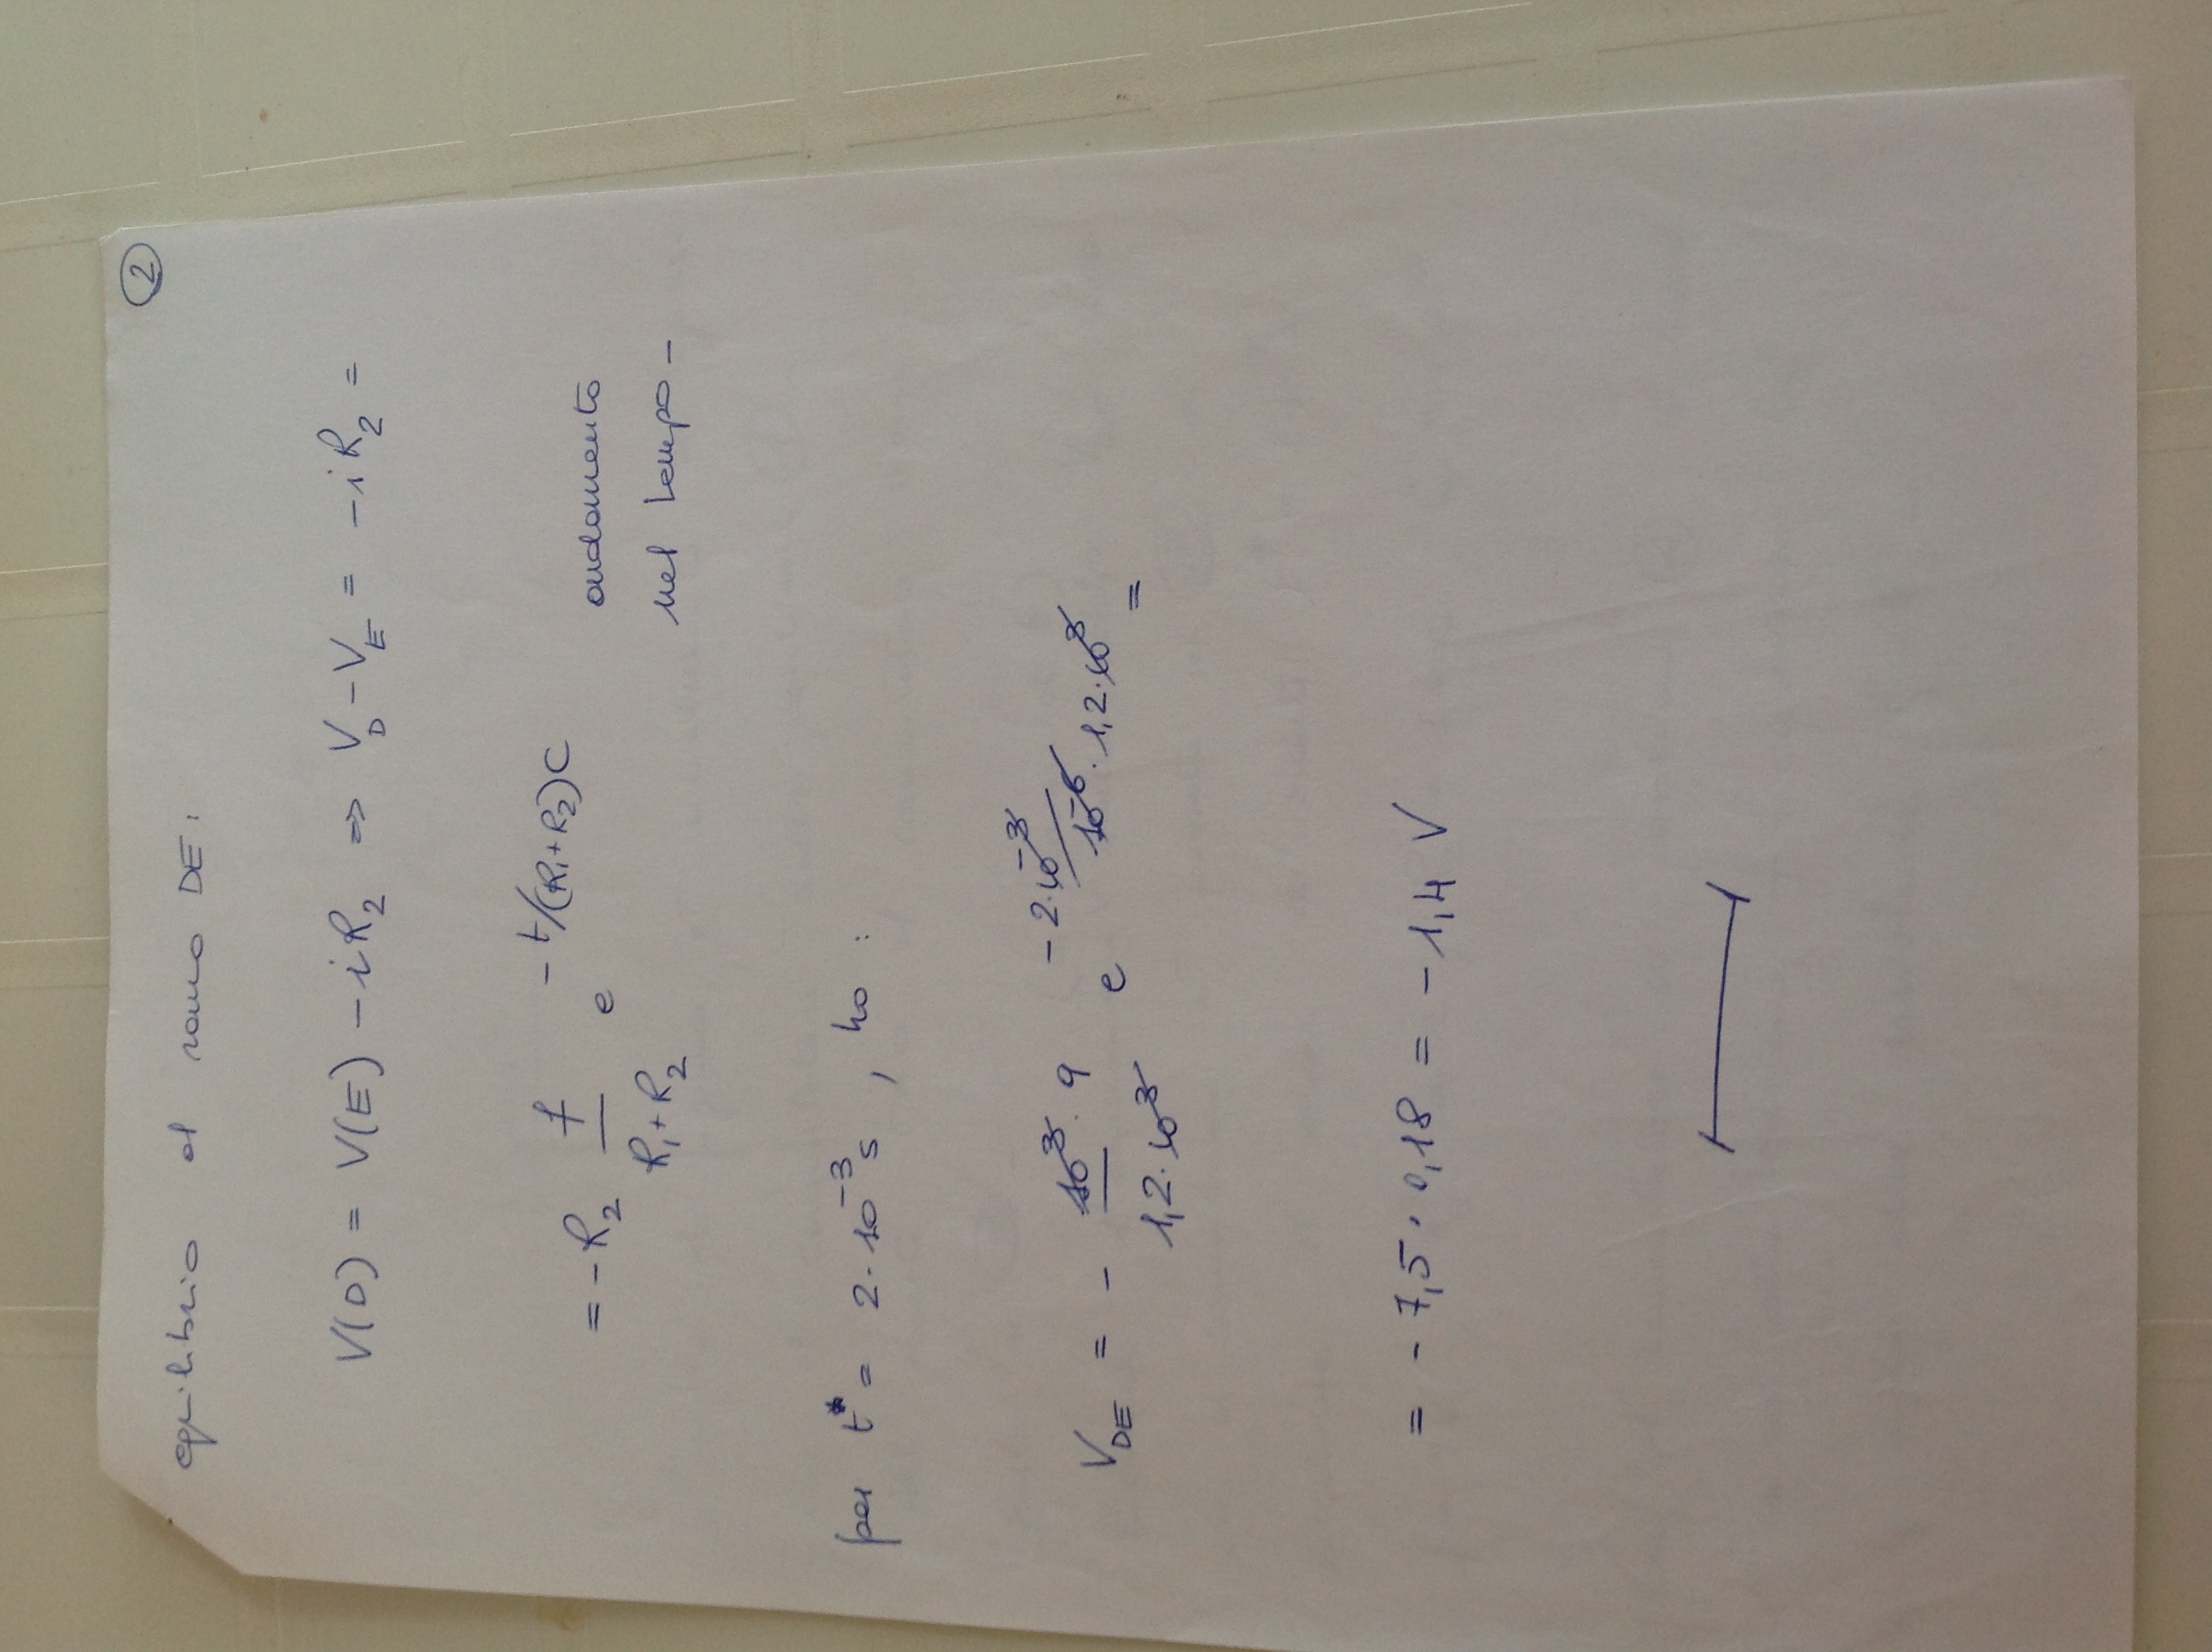 2
equilibrio al ramo DE:
V(D) = V(E) - iR₂ => V_D - V_E = -iR₂ =
= -R₂ f/(R₁+R₂) e^(-t/(R₁+R₂)C) andamento
nel tempo -
per t* = 2·10⁻³ s, ho :
V_DE = - (10³·9)/(1,2·10³) e^(-2·10⁻³/10⁻⁶·1,2·10³) =
= -7,5·0,18 = -1,4 V